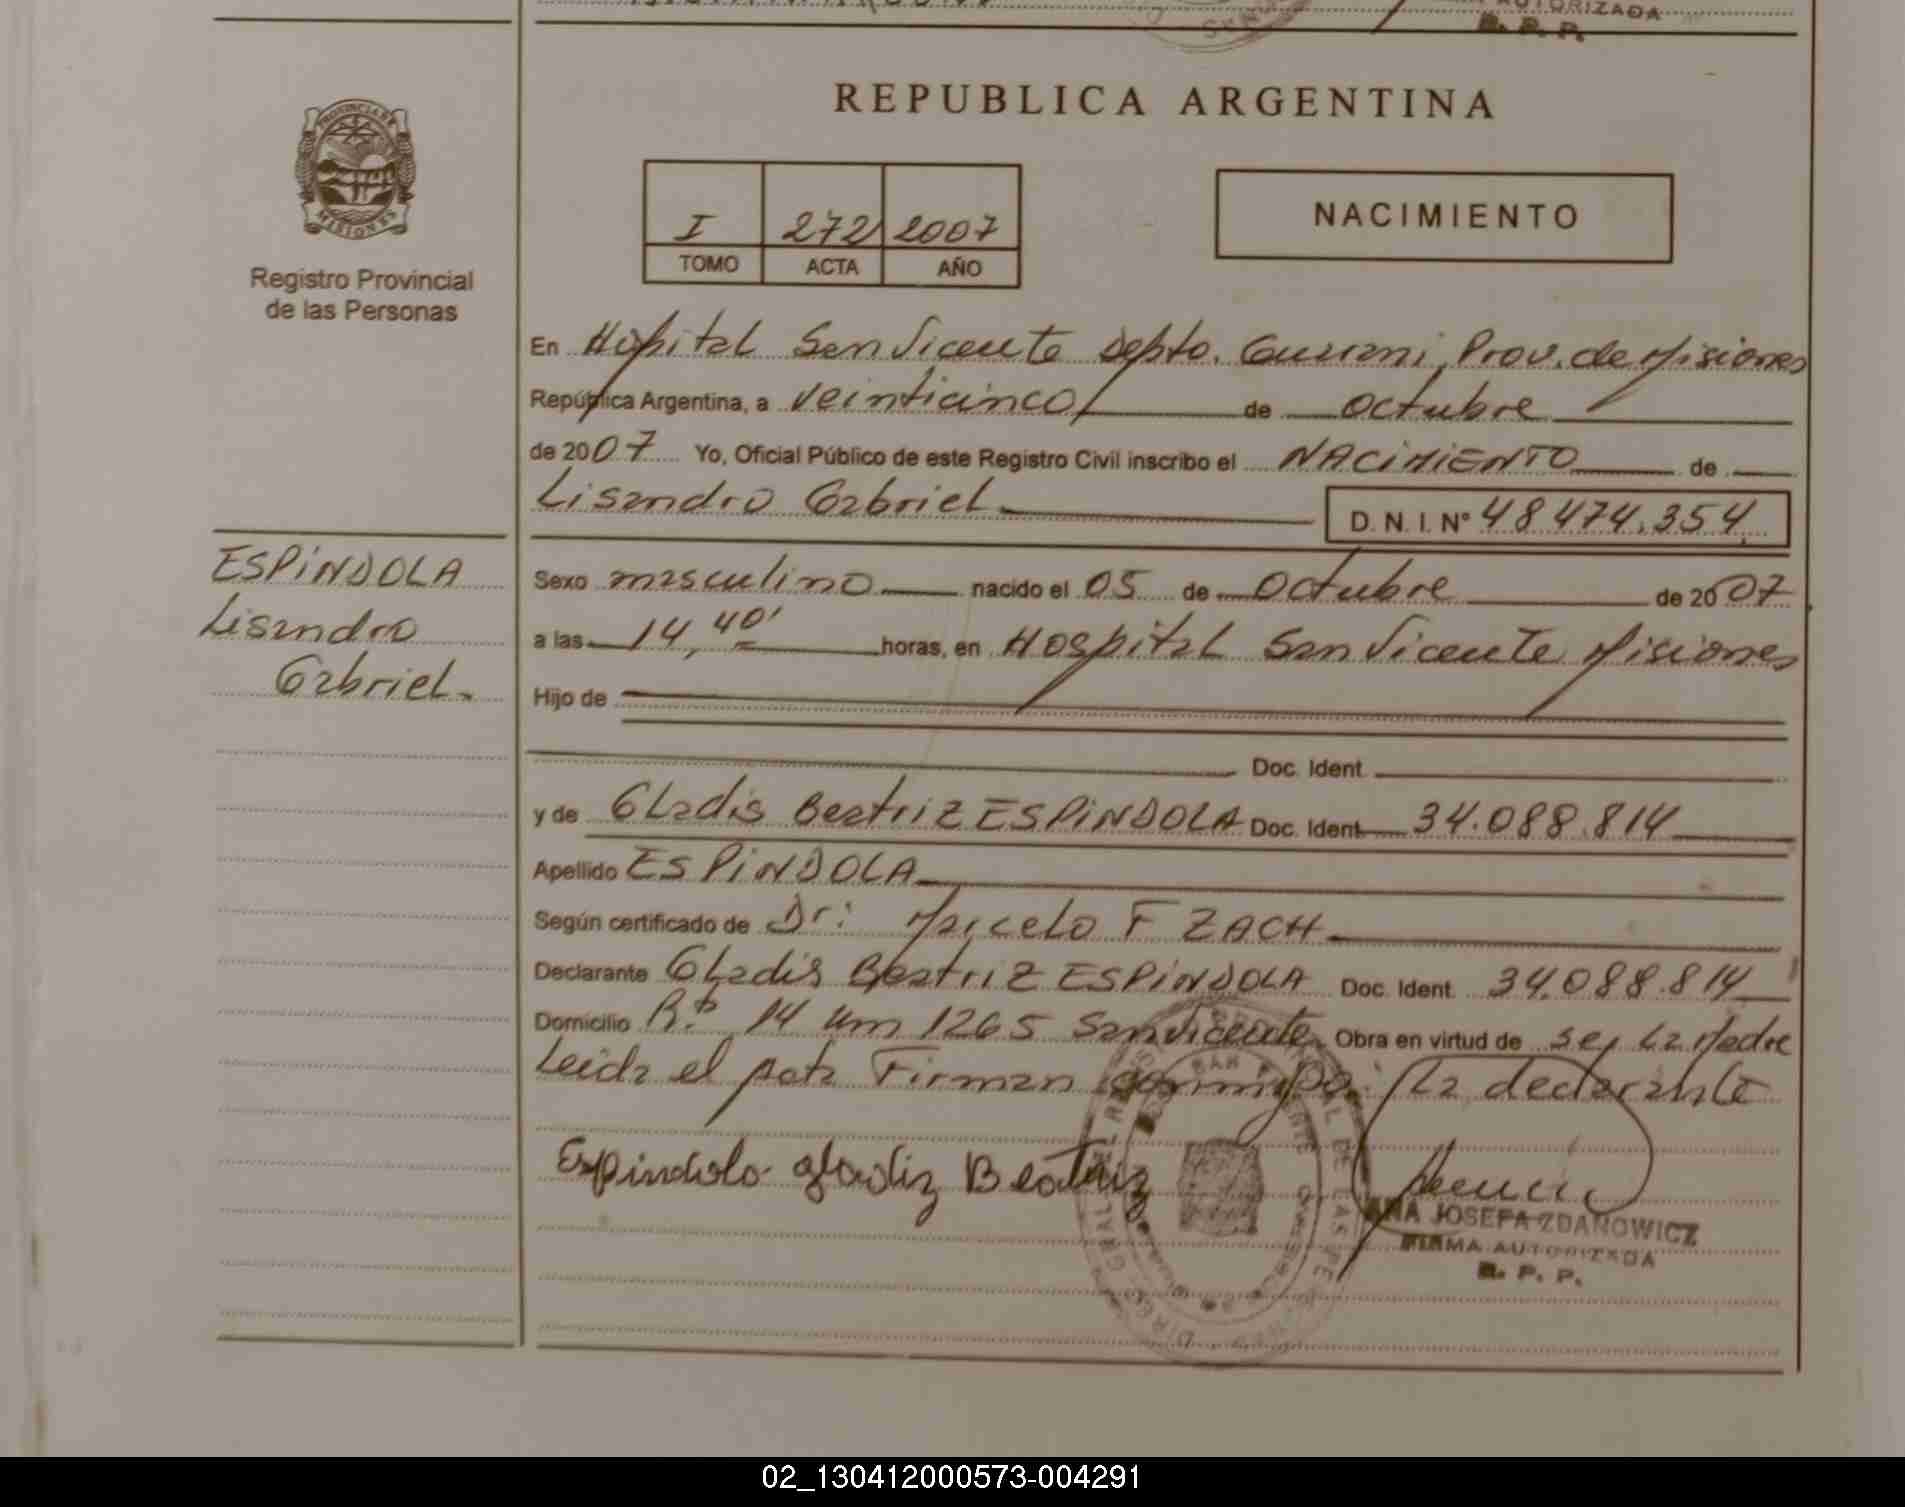 AUTORIZADA
R. P. P.
REPUBLICA ARGENTINA
PROVINCIA DE
MISIONES
Registro Provincial
de las Personas
I 272 2007
TOMO ACTA AÑO
NACIMIENTO
En Hospital San Vicente Depto. Guarani, Prov. de Misiones
República Argentina, a veinticinco de octubre
de 2007 Yo, Oficial Público de este Registro Civil inscribo el NACIMIENTO de
Lisandro Gabriel D. N. I. N° 48474.354
ESPINDOLA
Lisandro
Gabriel.
Sexo masculino nacido el 05 de Octubre de 2007
a las 14,40' horas, en Hospital San Vicente Misiones
Hijo de
Doc. Ident.
y de Gladis Beatriz ESPINDOLA Doc. Ident. 34.088.814
Apellido ESPINDOLA
Según certificado de Dr: Marcelo F ZACH
Declarante Gladis Beatriz ESPINDOLA Doc. Ident. 34.088.814
Domicilio R.ta 14 Km 1265 San Vicente Obra en virtud de ser La Madre
Leida el acta Firman conmigo: La declarante
Espindola gladiz Beatriz
ANA JOSEFA ZDANOWICZ
FIRMA AUTORIZADA
R. P. P.
02_130412000573-004291